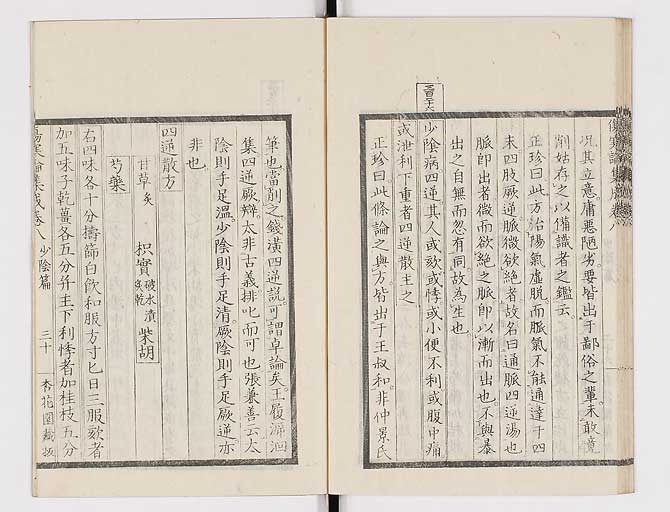 況其立意庸惡陋劣要皆出于鄙俗之輩未敢竟
削姑存之以備識者之鑑云
正珍曰此方治陽氣虛脱而脈氣不能通達于四
末四肢厥逆脈微欲絶者故名曰通脈四逆湯也
脈即出者微而欲絶之脈即以漸而出也不與暴
出之自無而忽有同故為生也
三百二十六
少陰病四逆其人或欬或悸或小便不利或腹中痛
或泄利下重者四逆散主之
正珍曰此條論之與方皆出于王叔和非仲景氏
傷寒論集成卷八
筆也當削之錢潢四逆説可謂卓論矣王履溯洄
集四逆厥辯太非古義排叱而可也張兼善云太
陰則手足溫少陰則手足清厥陰則手足厥逆亦
非也
四逆散方
甘草炙 枳實破水漬炙乾 柴胡
芍藥
右四味各十分擣篩白飲和服方寸匕日三服欬者
加五味子乾薑各五分并主下利悸者加桂枝五分
傷寒論集成卷八 少陰篇 三十 杏花園藏板